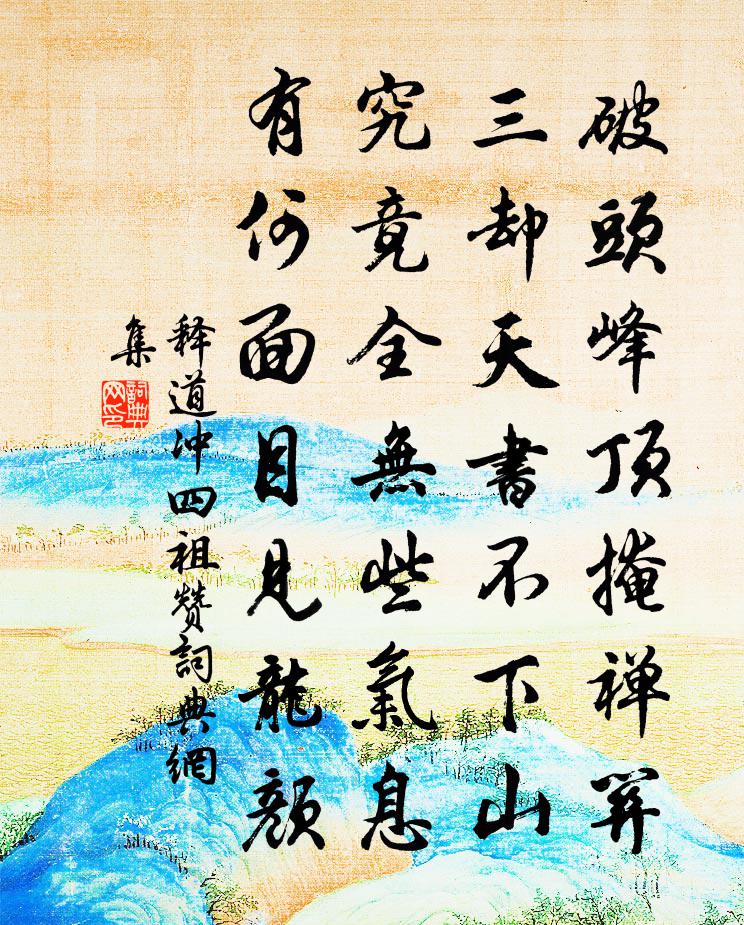 破頭峰頂掩禅関
三却天書不下山
究竟全無些氣息
有何面目見龍顔
释道沖四祖赞詞典網
集
詞典
网印